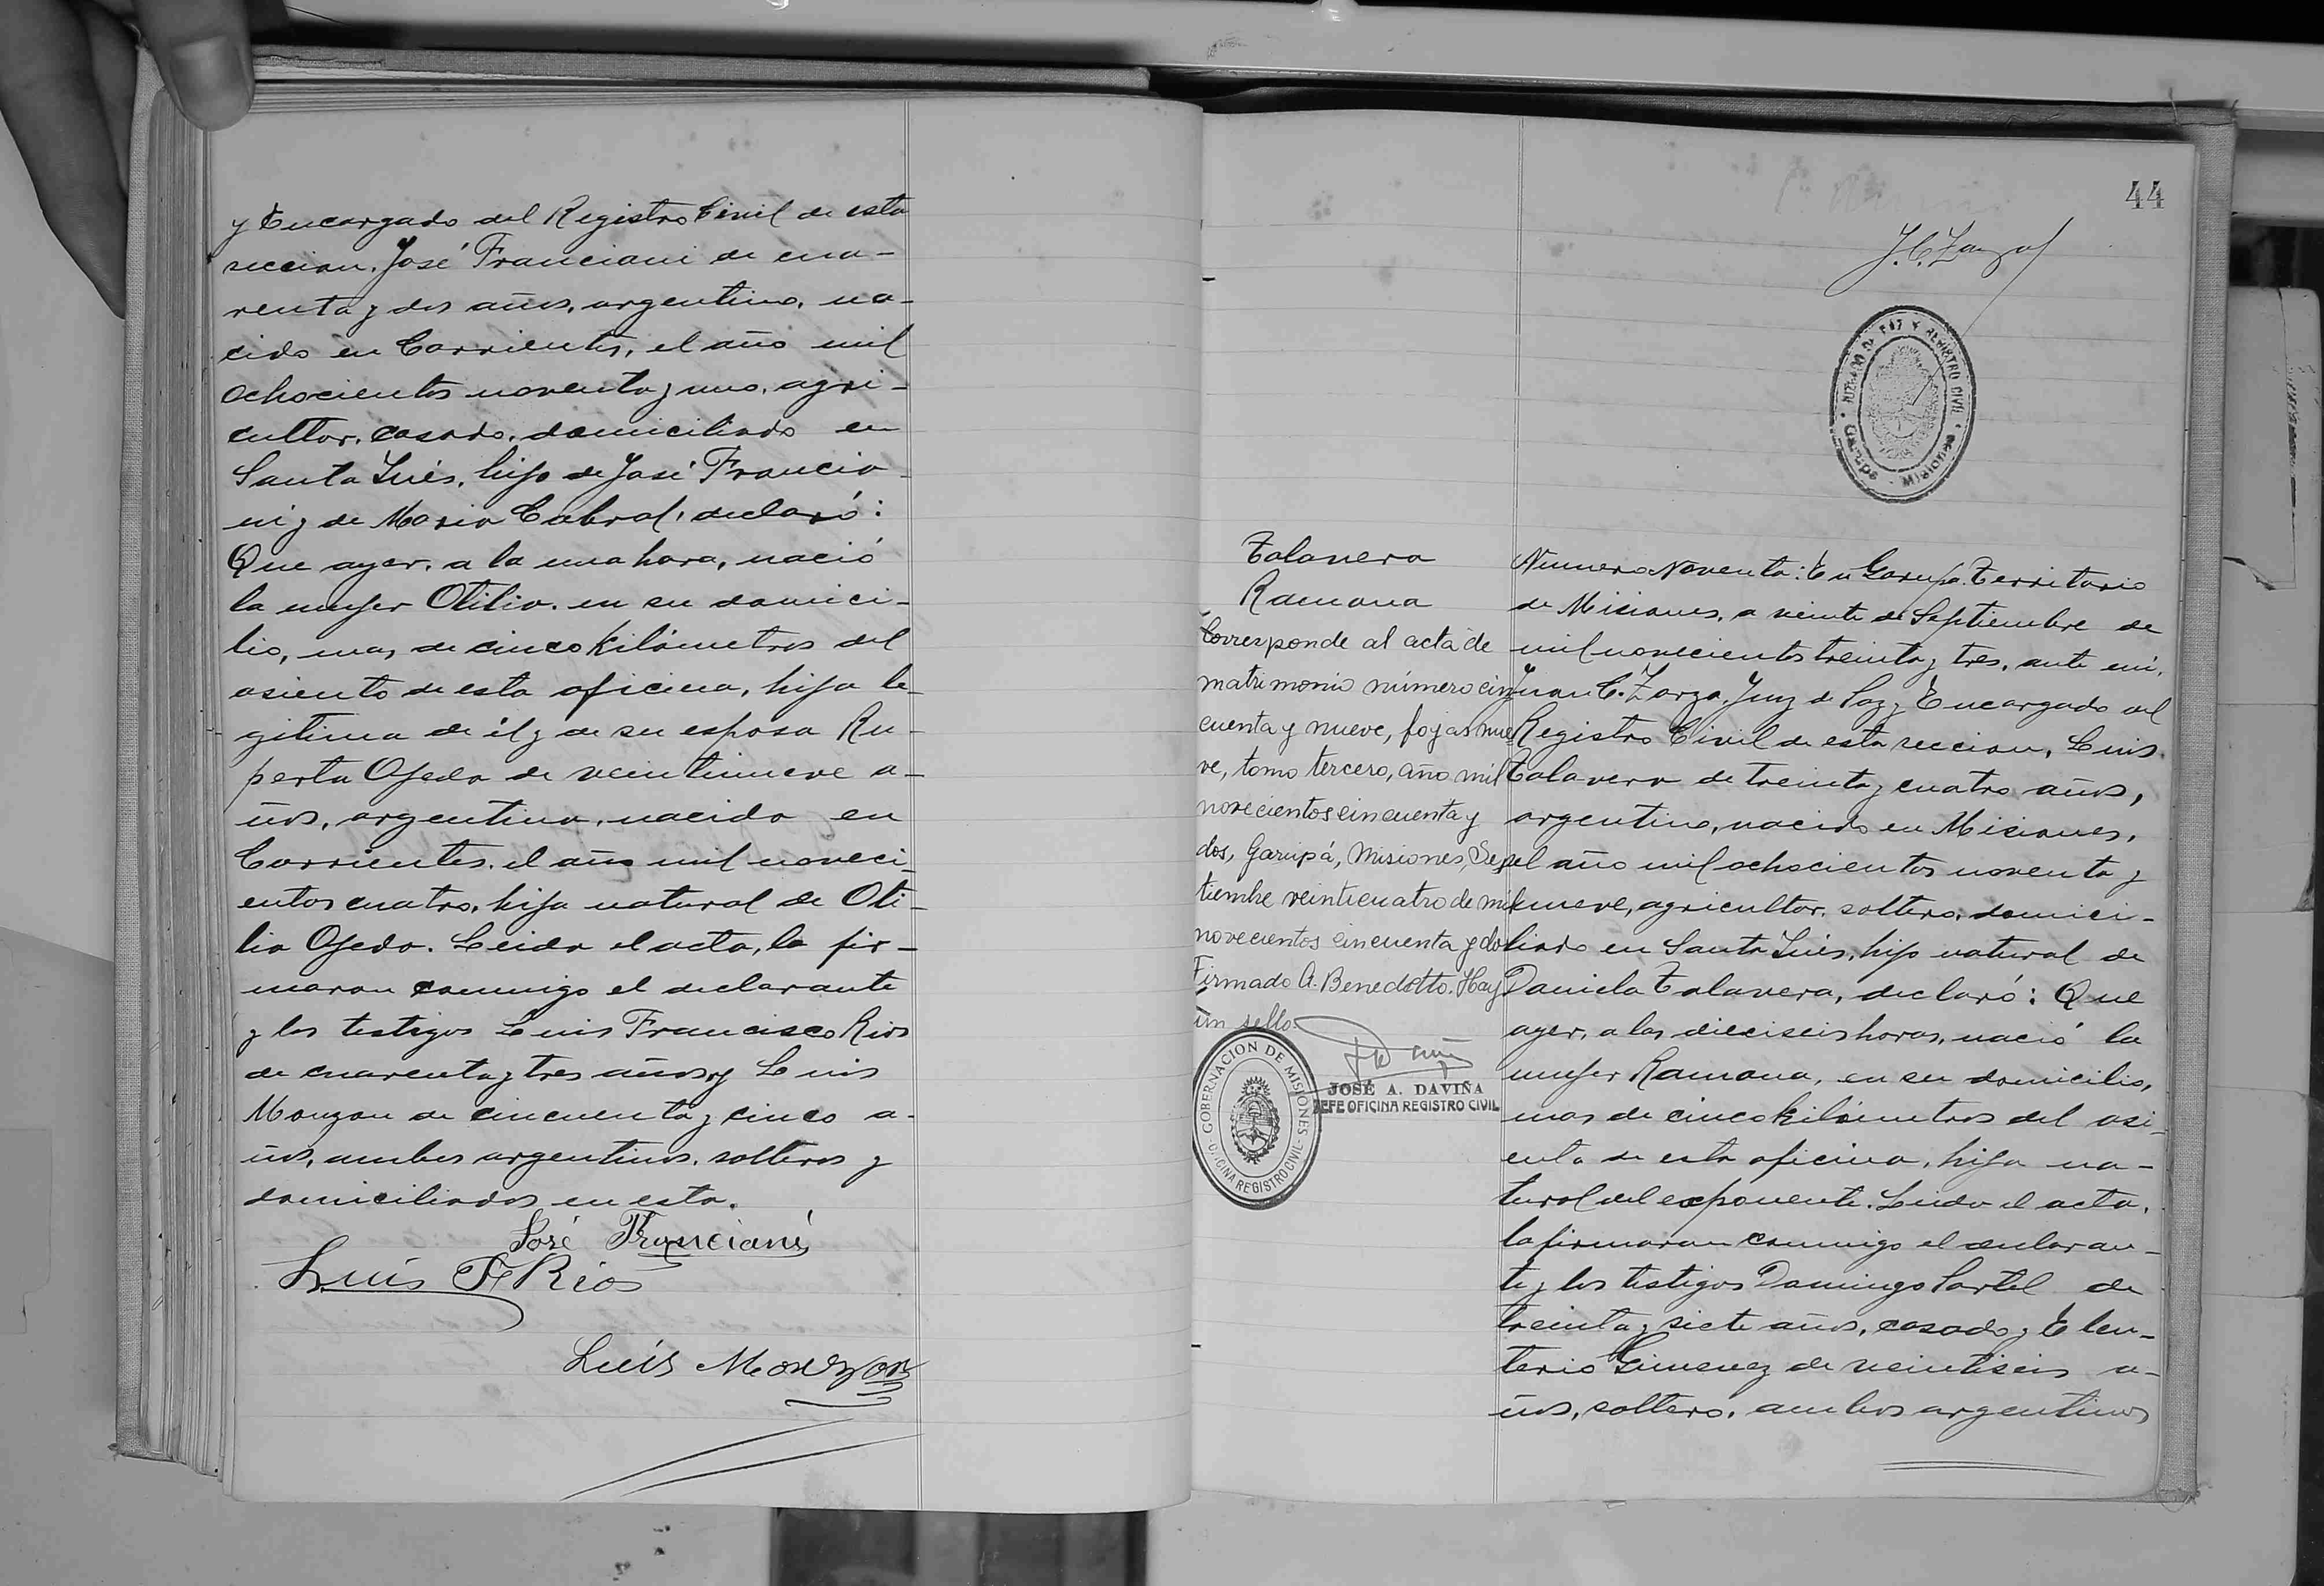 y Encargado del Registro Civil de esta
seccion. José Franciani de cua-
renta y dos años, argentino, na-
cido en Corrientes, el año mil
ochocientos noventa y uno, agri-
cultor, casado, domiciliado en
Santa Inés, hijo de José Francia-
ni y de Maria Cabral, declaró:
Que ayer, a la una hora, nació
la mujer Otilia, en su domici-
lio, mas de cinco kilómetros del
asiento de esta oficina, hija le-
gitima de él y de su esposa Ru-
perta Ojeda de veintinueve a-
ños, argentina, nacida en
Corrientes, el año mil noveci-
entos cuatro, hija natural de Oti-
lia Ojeda. Leida el acta, la fir-
maron conmigo el declarante
y los testigos Luis Francisco Rios
de cuarenta y tres años y Luis
Monzon de cincuenta y cinco a-
ños, ambos argentinos, solteros y
domiciliados en esta.
José Franciani
Luis F Rios
Luis Monzon
44
J. C. Zarza
JUZGADO DE PAZ Y REGISTRO CIVIL
GARUPA · MISIONES
Talavera
Ramona
Corresponde al acta de
matrimonio número cin-
cuenta y nueve, fojas nue-
ve, tomo tercero, año mil
novecientos cincuenta y
dos, Garupá, Misiones, Sep-
tiembre veinticuatro de mil
novecientos cincuenta y dos
Firmado A. Benedetto. Hay
un sello.
JOSÉ A. DAVIÑA
JEFE OFICINA REGISTRO CIVIL
GOBERNACION DE MISIONES
OFICINA REGISTRO CIVIL
Numero Noventa: En Garupa. Territorio
de Misiones, a veinte de Septiembre de
mil novecientos treinta y tres, ante mi,
Juan C. Zarza. Juez de Paz y Encargado del
Registro Civil de esta seccion, Luis
Talavera de treinta y cuatro años,
argentino, nacido en Misiones,
el año mil ochocientos noventa y
nueve, agricultor, soltero, domici-
liado en Santa Inés, hijo natural de
Daniela Talavera, declaró: Que
ayer, a las dieciseis horas, nació la
mujer Ramona, en su domicilio,
mas de cinco kilómetros del asi-
ento de esta oficina, hija na-
tural del exponente. Leida el acta,
la firmaron conmigo el declaran-
te y los testigos Domingo Portel de
treinta y siete años, casado y Eleu-
terio Gimenez de veintiseis a-
ños, soltero, ambos argentinos